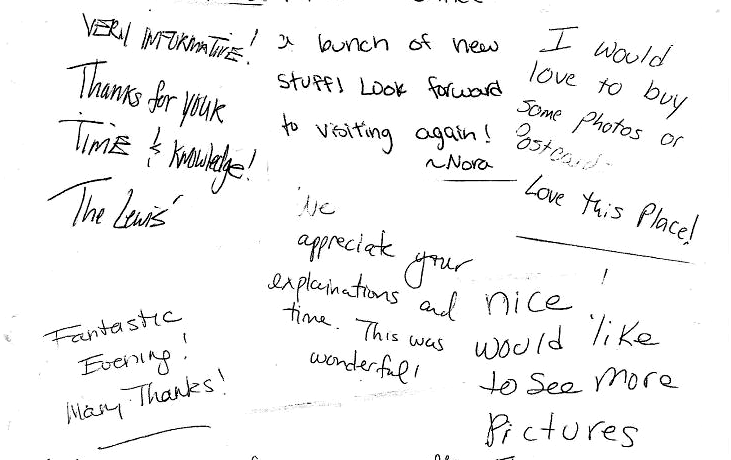 VERY INFORMATIVE!
Thanks for your
TIME & Knowledge!
The Lewis'
a bunch of new
stuff! Look forward
to visiting again!
~Nora
I would
love to buy
some photos or
Postcard
Love this Place!
We
appreciate your
explainations and
time. This was
wonderful!
Fantastic
Evening!
Many Thanks!
nice
would like
to see more
Pictures